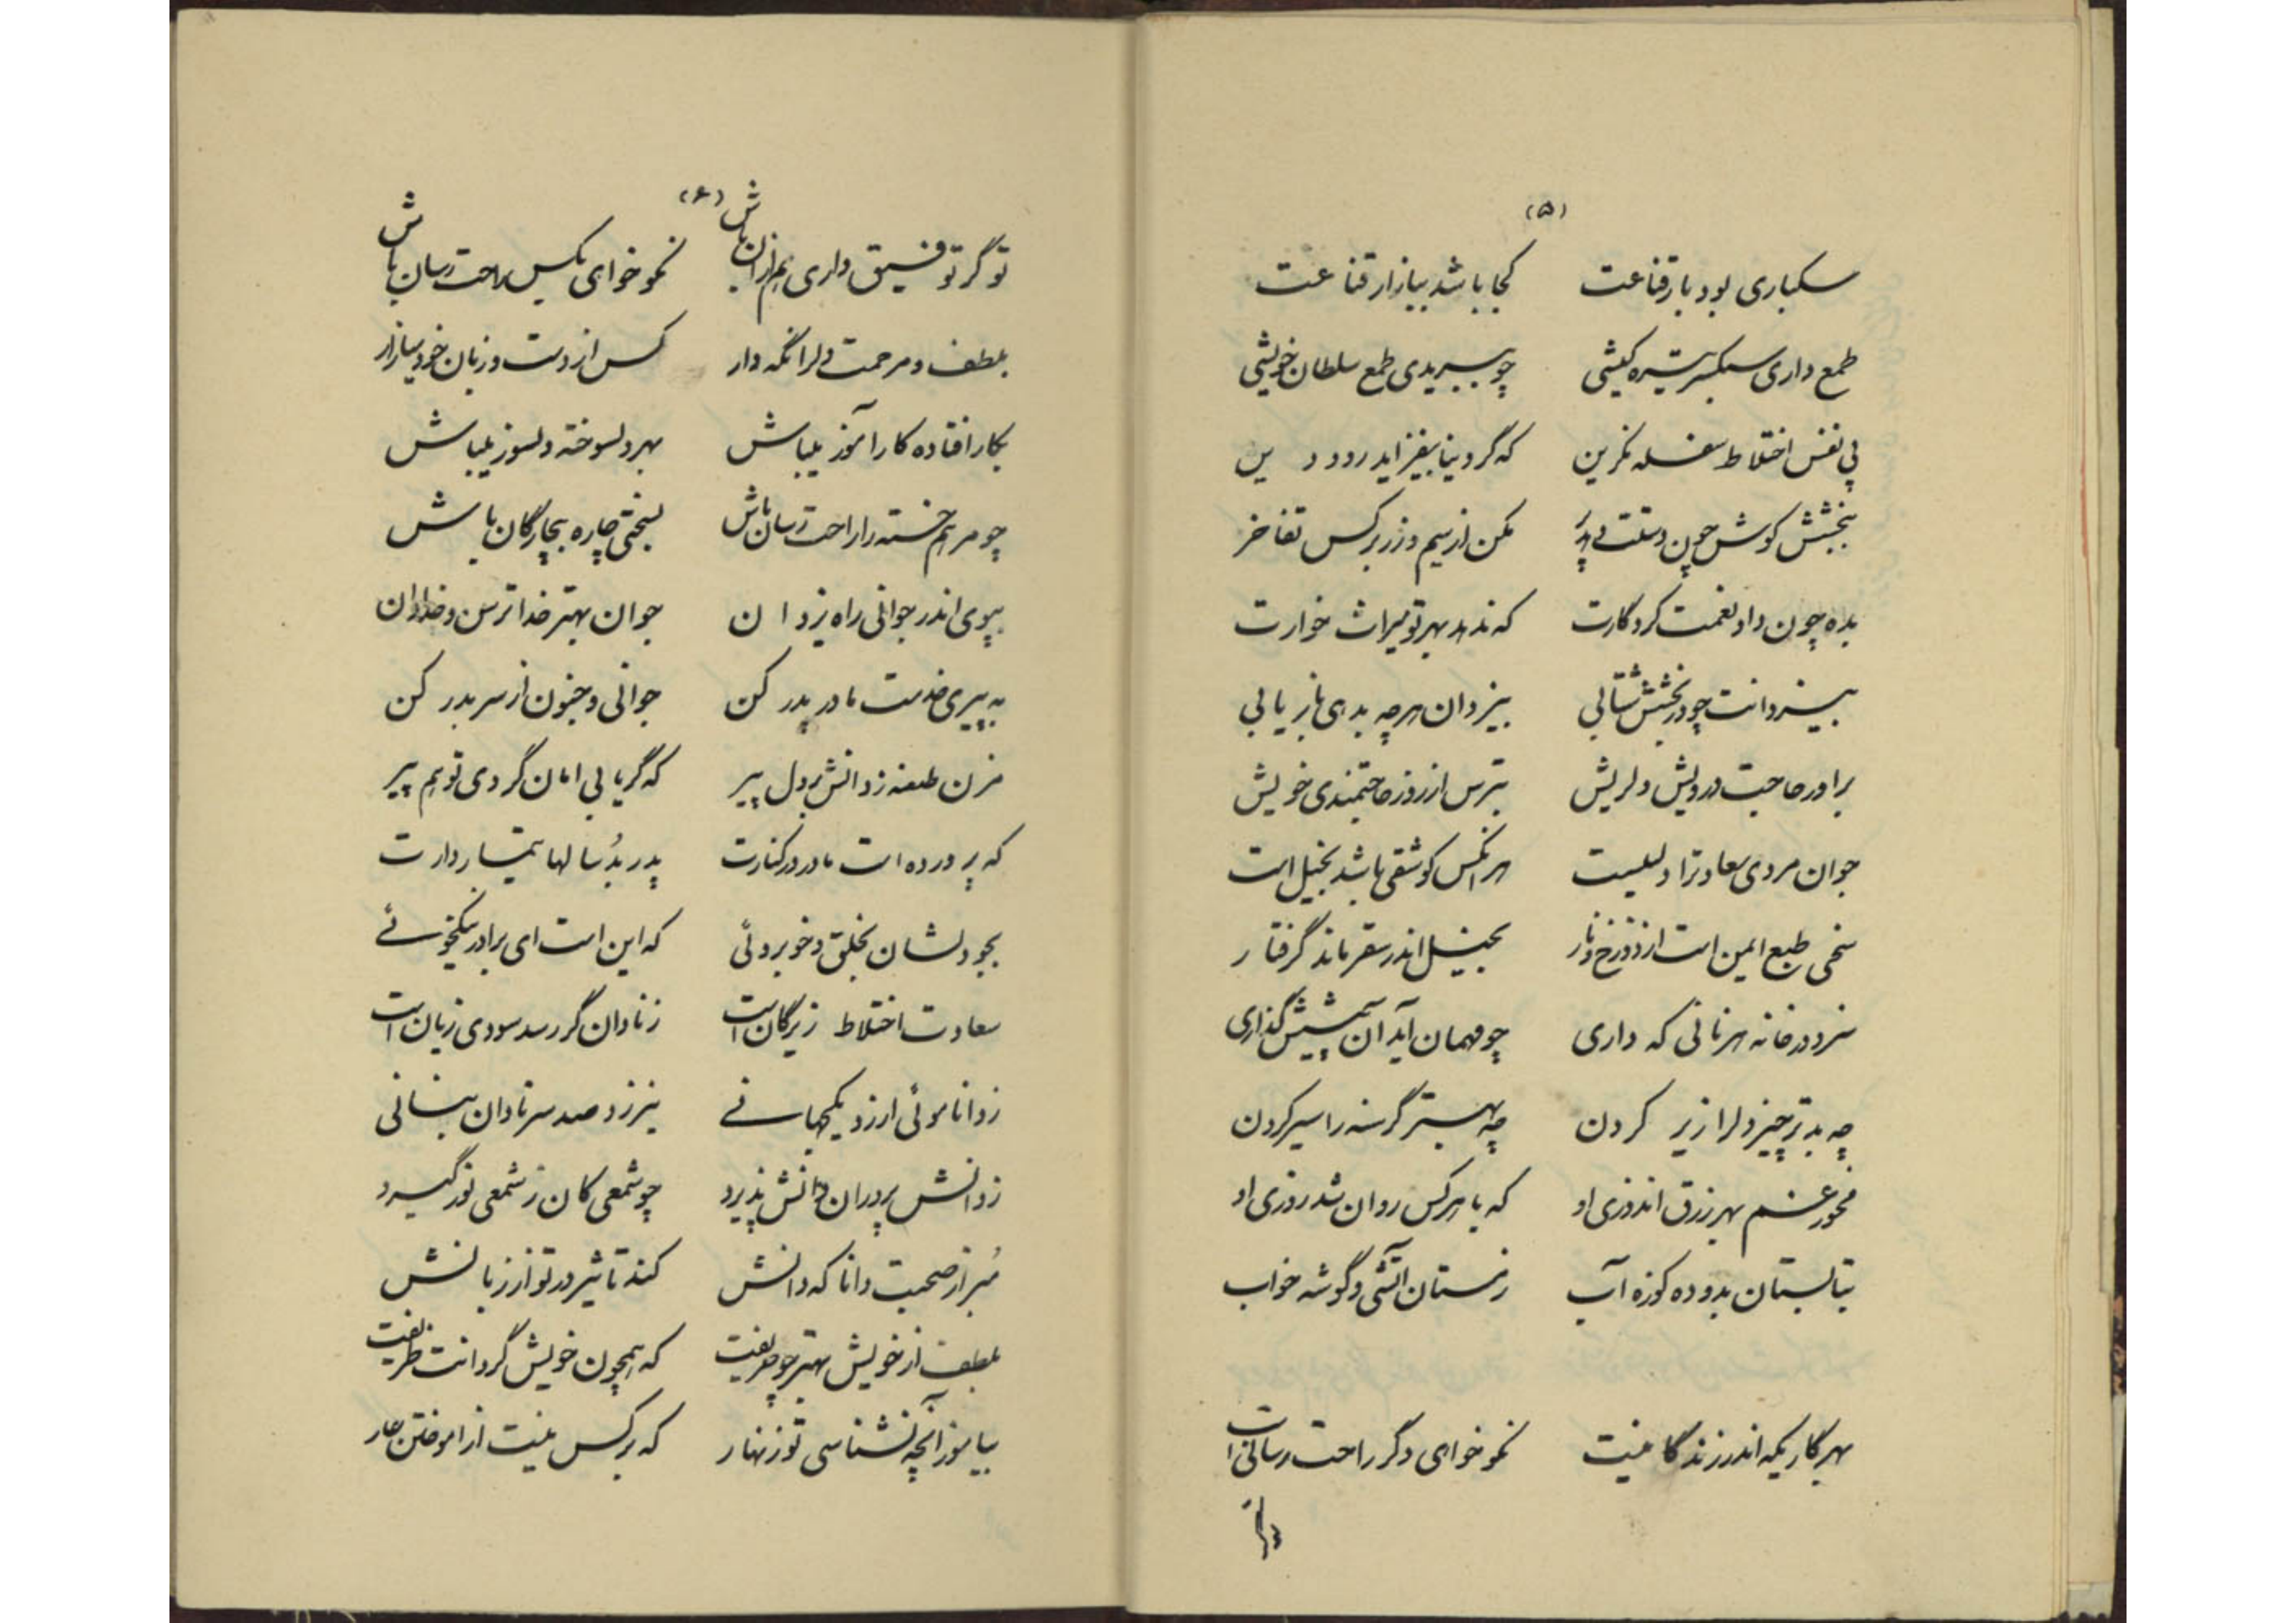 (۵)
سبکباری بود بار قناعت کجا باشد ببازار قناعت
طمع داری سبکسر تیره کیشی چو ببریدی طمع سلطان خویشی
پی نفس اختلاط سفله مگزین که گر دنیا بیفزاید رود دین
ببخشش کوش چون دستت بی پر مکن از سیم و زر بر کس تفاخر
بده چون داد نعمت کردگارت که ندهد بهر تو میراث خوارت
بیزدانت چو در بخشش شتابی بیزدان هرچه بدهی باز یابی
برآور حاجت درویش دلریش بترس از روز حاجتمندی خویش
جوان مردی سعادترا دلیلست هر آنکس کو شقی باشد بخیل است
سخی طبع ایمن است از دوزخ و نار بخیل اندر سقر ماند گرفتار
سزد در خانه هر نانی که داری چو مهمان آید آن پیشش گذاری
چه بدتر چیز دلرا زیر کردن چه بهتر گرسنه را سیر کردن
مخور غم بهر رزق اندوزی او که با هرکس روان شد روزی او
بتابستان بدو ده کوزه آب زمستان آتشی و گوشه خواب
بهر کاریکه اندر زندگانیست نکو خوای دگر راحت رسانی است
(۶)
تو گر توفیق داری هم از آن باش نکو خوای بکس راحت رسان باش
بلطف و مرحمت دلرا نگه دار کس از دست و زبان خود میازار
بکار افتاده کار آموز میباش بهر دلسوخته دلسوز میباش
چو مرهم خسته را راحت رسان باش بسختی چاره بیچارگان باش
بپوی اندر جوانی راه یزدان جوان بهتر خدا ترس و خدادان
به پیری خدمت مادر پدر کن جوانی و جنون از سر بدر کن
مزن طعنه ز دانش بر دل پیر که گر یابی امان گردی تو هم پیر
که پرورده است مادر در کنارت پدر بُد سالها تیماردارت
بجو دلشان بخلق و خوبروئی که این است ای برادر نیکخوئے
سعادت اختلاط زیرکان است ز نادان گر رسد سودی زیان است
ز دانا موئی ارزد یکجهانے نیرزد صد سر نادان بنانی
ز دانش پروران دانش پذیرد چو شمعی کان ز شمعی نور گیرد
مُبر از صحبت دانا که دانش کند تاثیر در تو از زبانش
بلطف از خویش بهتر جو حریفت که همچون خویش گرداند ظریفت
بیاموز آنچه نشناسی تو زنهار که بر کس نیست از آموختن عار